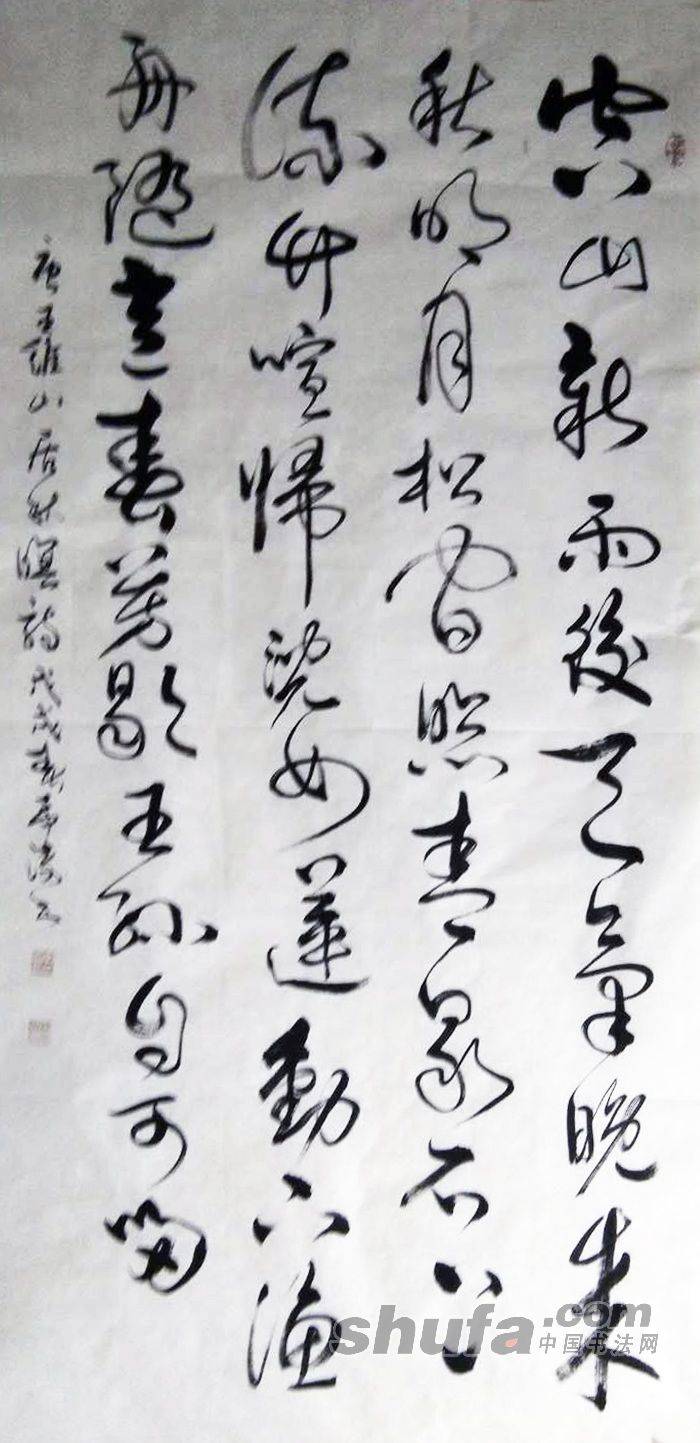 空山新雨後天氣晚来
秋明月松間照清泉石上
流竹喧歸浣女蓮動下漁
舟隨意春芳歇王孫自可留
唐王維山居秋暝詩戊戌
shufa.com
中国书法网